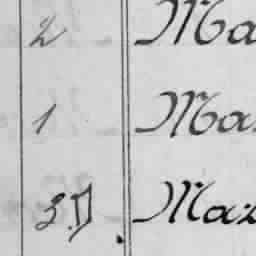 2 Ma
1 Ma
3.D. Maz